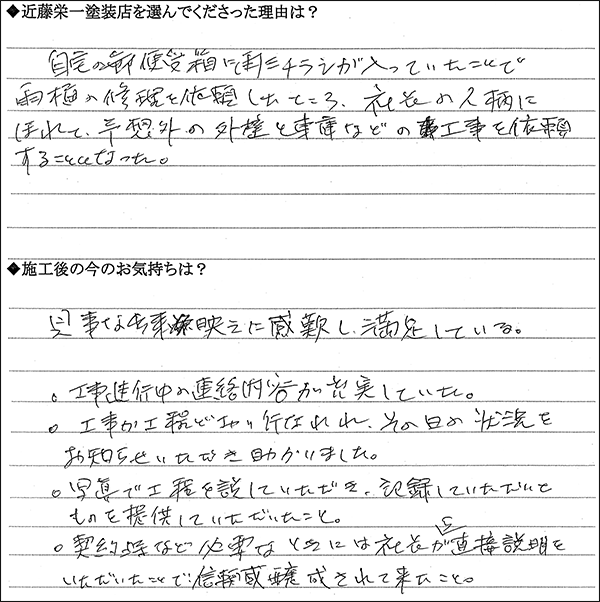 ◆近藤栄一塗装店を選んでくださった理由は?
自宅の郵便受箱にチラシが入っていたことで
雨樋の修理を依頼したところ、社長の人柄に
ほれて、予想外の外壁と車庫などの工事を依頼
することになった。
◆施工後の今のお気持ちは?
見事な出来映えに感歎し、満足している。
。工事進行中の連絡内容が充実していた。
。工事が工程どおり行なわれ、その日の状況を
お知らせいただき助かりました。
。写真で工程を説していただき、記録していただいた
ものを提供していただいたこと。
。契約時など必要なときには社長が直接説明を
いただいたことで信頼感醸成されて来たこと。